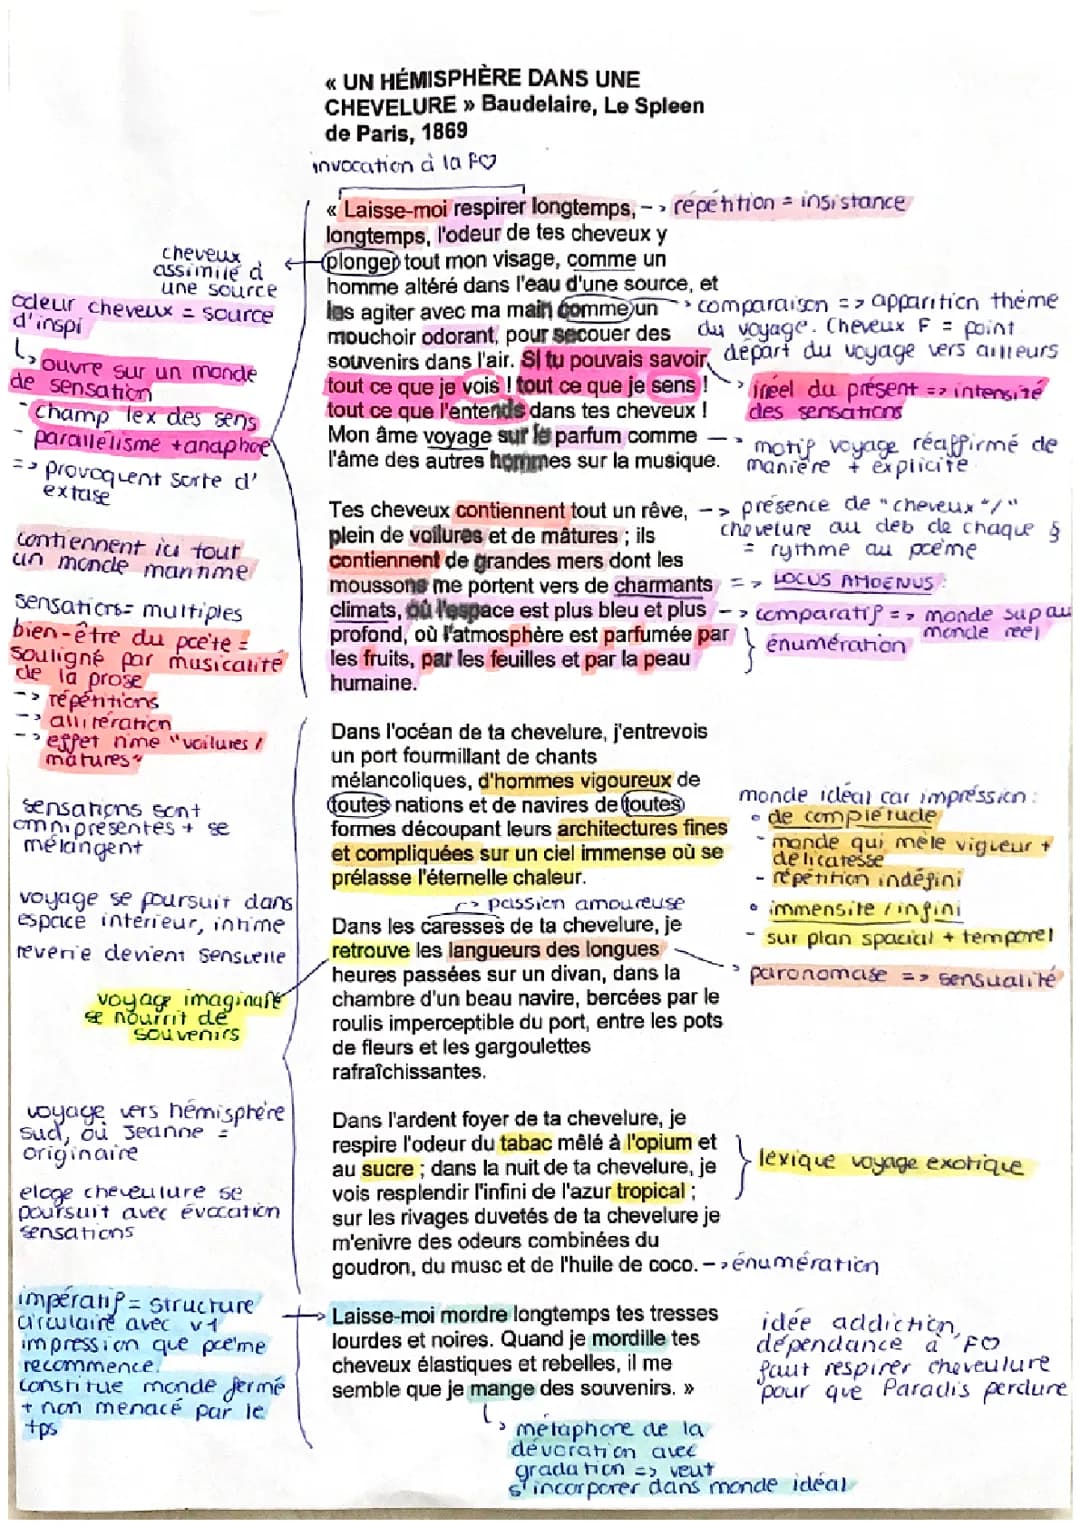 « UN HÉMISPHÈRE DANS UNE
CHEVELURE » Baudelaire, Le Spleen
de Paris, 1869
invocation à la F♡
« Laisse-moi respirer longtemps, -> répétition = insistance
longtemps, l'odeur de tes cheveux y
plonger tout mon visage, comme un
homme altéré dans l'eau d'une source, et
les agiter avec ma main comme un
mouchoir odorant, pour secouer des
souvenirs dans l'air. SI tu pouvais savoir
tout ce que je vois ! tout ce que je sens !
tout ce que l'entends dans tes cheveux !
Mon âme voyage sur le parfum comme
l'âme des autres hommes sur la musique.
cheveux
assimilé à
une source
odeur cheveux = source
d'inspi
↳ ouvre sur un monde
de sensation
- champ lex des sens
- parallélisme + anaphore
=> provoquent sorte d'
extase
-> comparaison => apparition thème
du voyage. Cheveux F = point
départ du voyage vers ailleurs
-> irréel du présent => intensité
des sensations
-> motif voyage réaffirmé de
manière + explicite
Tes cheveux contiennent tout un rêve,
plein de voilures et de mâtures ; ils
contiennent de grandes mers dont les
moussons me portent vers de charmants
climats, où l'espace est plus bleu et plus
profond, où l'atmosphère est parfumée par
les fruits, par les feuilles et par la peau
humaine.
contiennent ici tout
un monde maritime
sensations = multiples
bien-être du poète =
souligné par musicalité
de la prose
-> répétitions
-> allitération
-> effet rime "voilures /
mâtures"
-> présence de "cheveux"/"
chevelure au déb de chaque §
= rythme au poème
=> LOCUS AMOENUS :
-> comparatif => monde sup au
monde réel
} énumération
Dans l'océan de ta chevelure, j'entrevois
un port fourmillant de chants
mélancoliques, d'hommes vigoureux de
toutes nations et de navires de toutes
formes découpant leurs architectures fines
et compliquées sur un ciel immense où se
prélasse l'éternelle chaleur.
sensations sont
omniprésentes + se
mélangent
monde idéal car impression :
• de complétude
- monde qui mêle vigueur +
délicatesse
- répétition indéfini
• immensité / infini
- sur plan spacial + temporel
-> passion amoureuse
Dans les caresses de ta chevelure, je
retrouve les langueurs des longues
heures passées sur un divan, dans la
chambre d'un beau navire, bercées par le
roulis imperceptible du port, entre les pots
de fleurs et les gargoulettes
rafraîchissantes.
voyage se poursuit dans
espace intérieur, intime
rêverie devient sensuelle
voyage imaginaire
se nourrit de
souvenirs
-> paronomase => sensualité
Dans l'ardent foyer de ta chevelure, je
respire l'odeur du tabac mêlé à l'opium et
au sucre ; dans la nuit de ta chevelure, je
vois resplendir l'infini de l'azur tropical ;
sur les rivages duvetés de ta chevelure je
m'enivre des odeurs combinées du
goudron, du musc et de l'huile de coco. -> énumération
voyage vers hémisphère
sud, où Jeanne =
originaire
eloge cheveulure se
poursuit avec évocation
sensations
} lexique voyage exotique
Laisse-moi mordre longtemps tes tresses
lourdes et noires. Quand je mordille tes
cheveux élastiques et rebelles, il me
semble que je mange des souvenirs. »
impératif = structure
circulaire avec v1
impression que poème
recommence.
constitue monde fermé
+ non menacé par le
tps
idée addiction,
dépendance à F♡
faut respirer cheveulure
pour que Paradis perdure
↳ métaphore de la
dévoration avec
gradation => veut
s'incorporer dans monde idéal